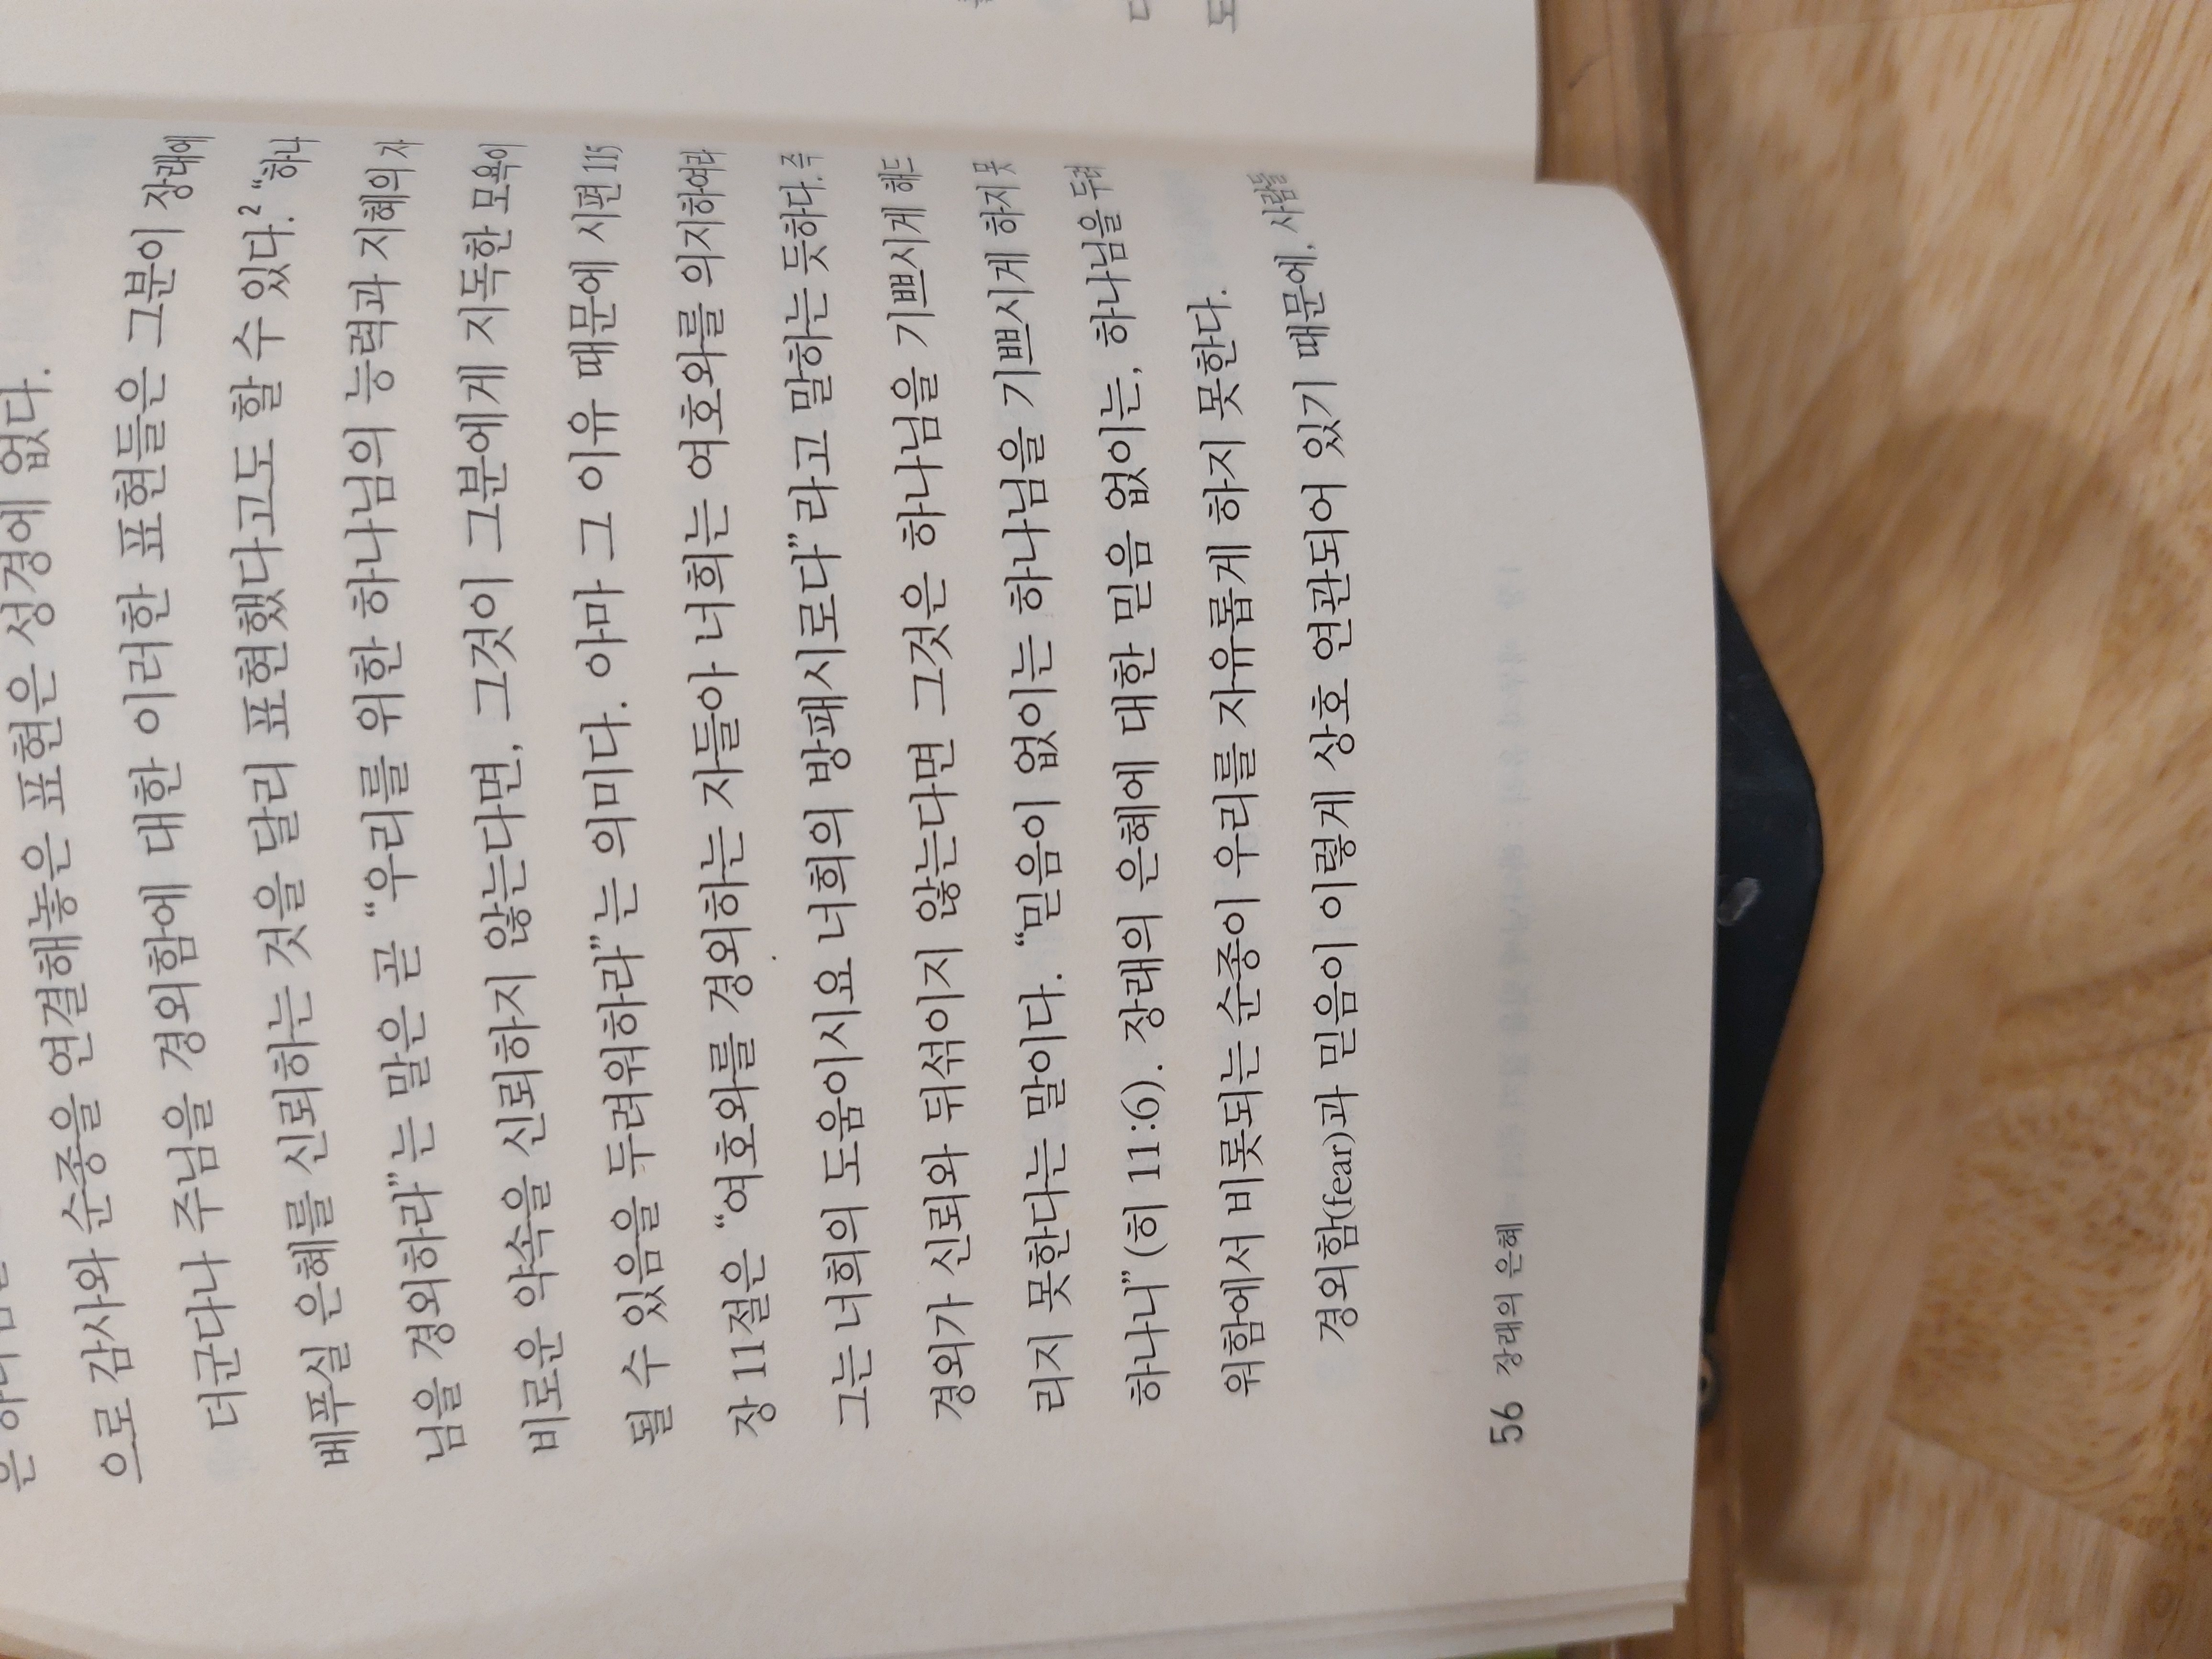 으로 감사와 순종을 연결해놓은 표현은 성경에 없다.
더군다나 주님을 경외함에 대한 이러한 표현들은 그분이 장래에
베푸실 은혜를 신뢰하는 것을 달리 표현했다고도 할 수 있다.² “하나
님을 경외하라”는 말은 곧 “우리를 위한 하나님의 능력과 지혜의 자
비로운 약속을 신뢰하지 않는다면, 그것이 그분에게 지독한 모욕이
될 수 있음을 두려워하라”는 의미다. 아마 그 이유 때문에 시편 115
장 11절은 “여호와를 경외하는 자들아 너희는 여호와를 의지하여라
그는 너희의 도움이시요 너희의 방패시로다”라고 말하는 듯하다. 즉
경외가 신뢰와 뒤섞이지 않는다면 그것은 하나님을 기쁘시게 해드
리지 못한다는 말이다. “믿음이 없이는 하나님을 기쁘시게 하지 못
하나니”(히 11:6). 장래의 은혜에 대한 믿음 없이는, 하나님을 두려
워함에서 비롯되는 순종이 우리를 자유롭게 하지 못한다.
경외함(fear)과 믿음이 이렇게 상호 연관되어 있기 때문에, 사람들
56 장래의 은혜